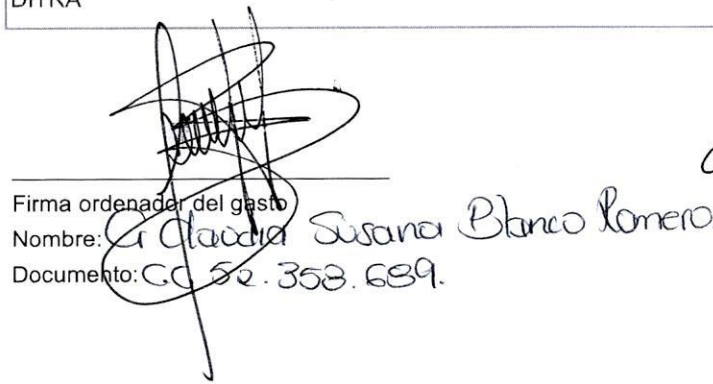 DITRA
Firma ordenador del gasto
Nombre: Cr Claudia Susana Blanco Romero
Documento: CC 52.353.689.